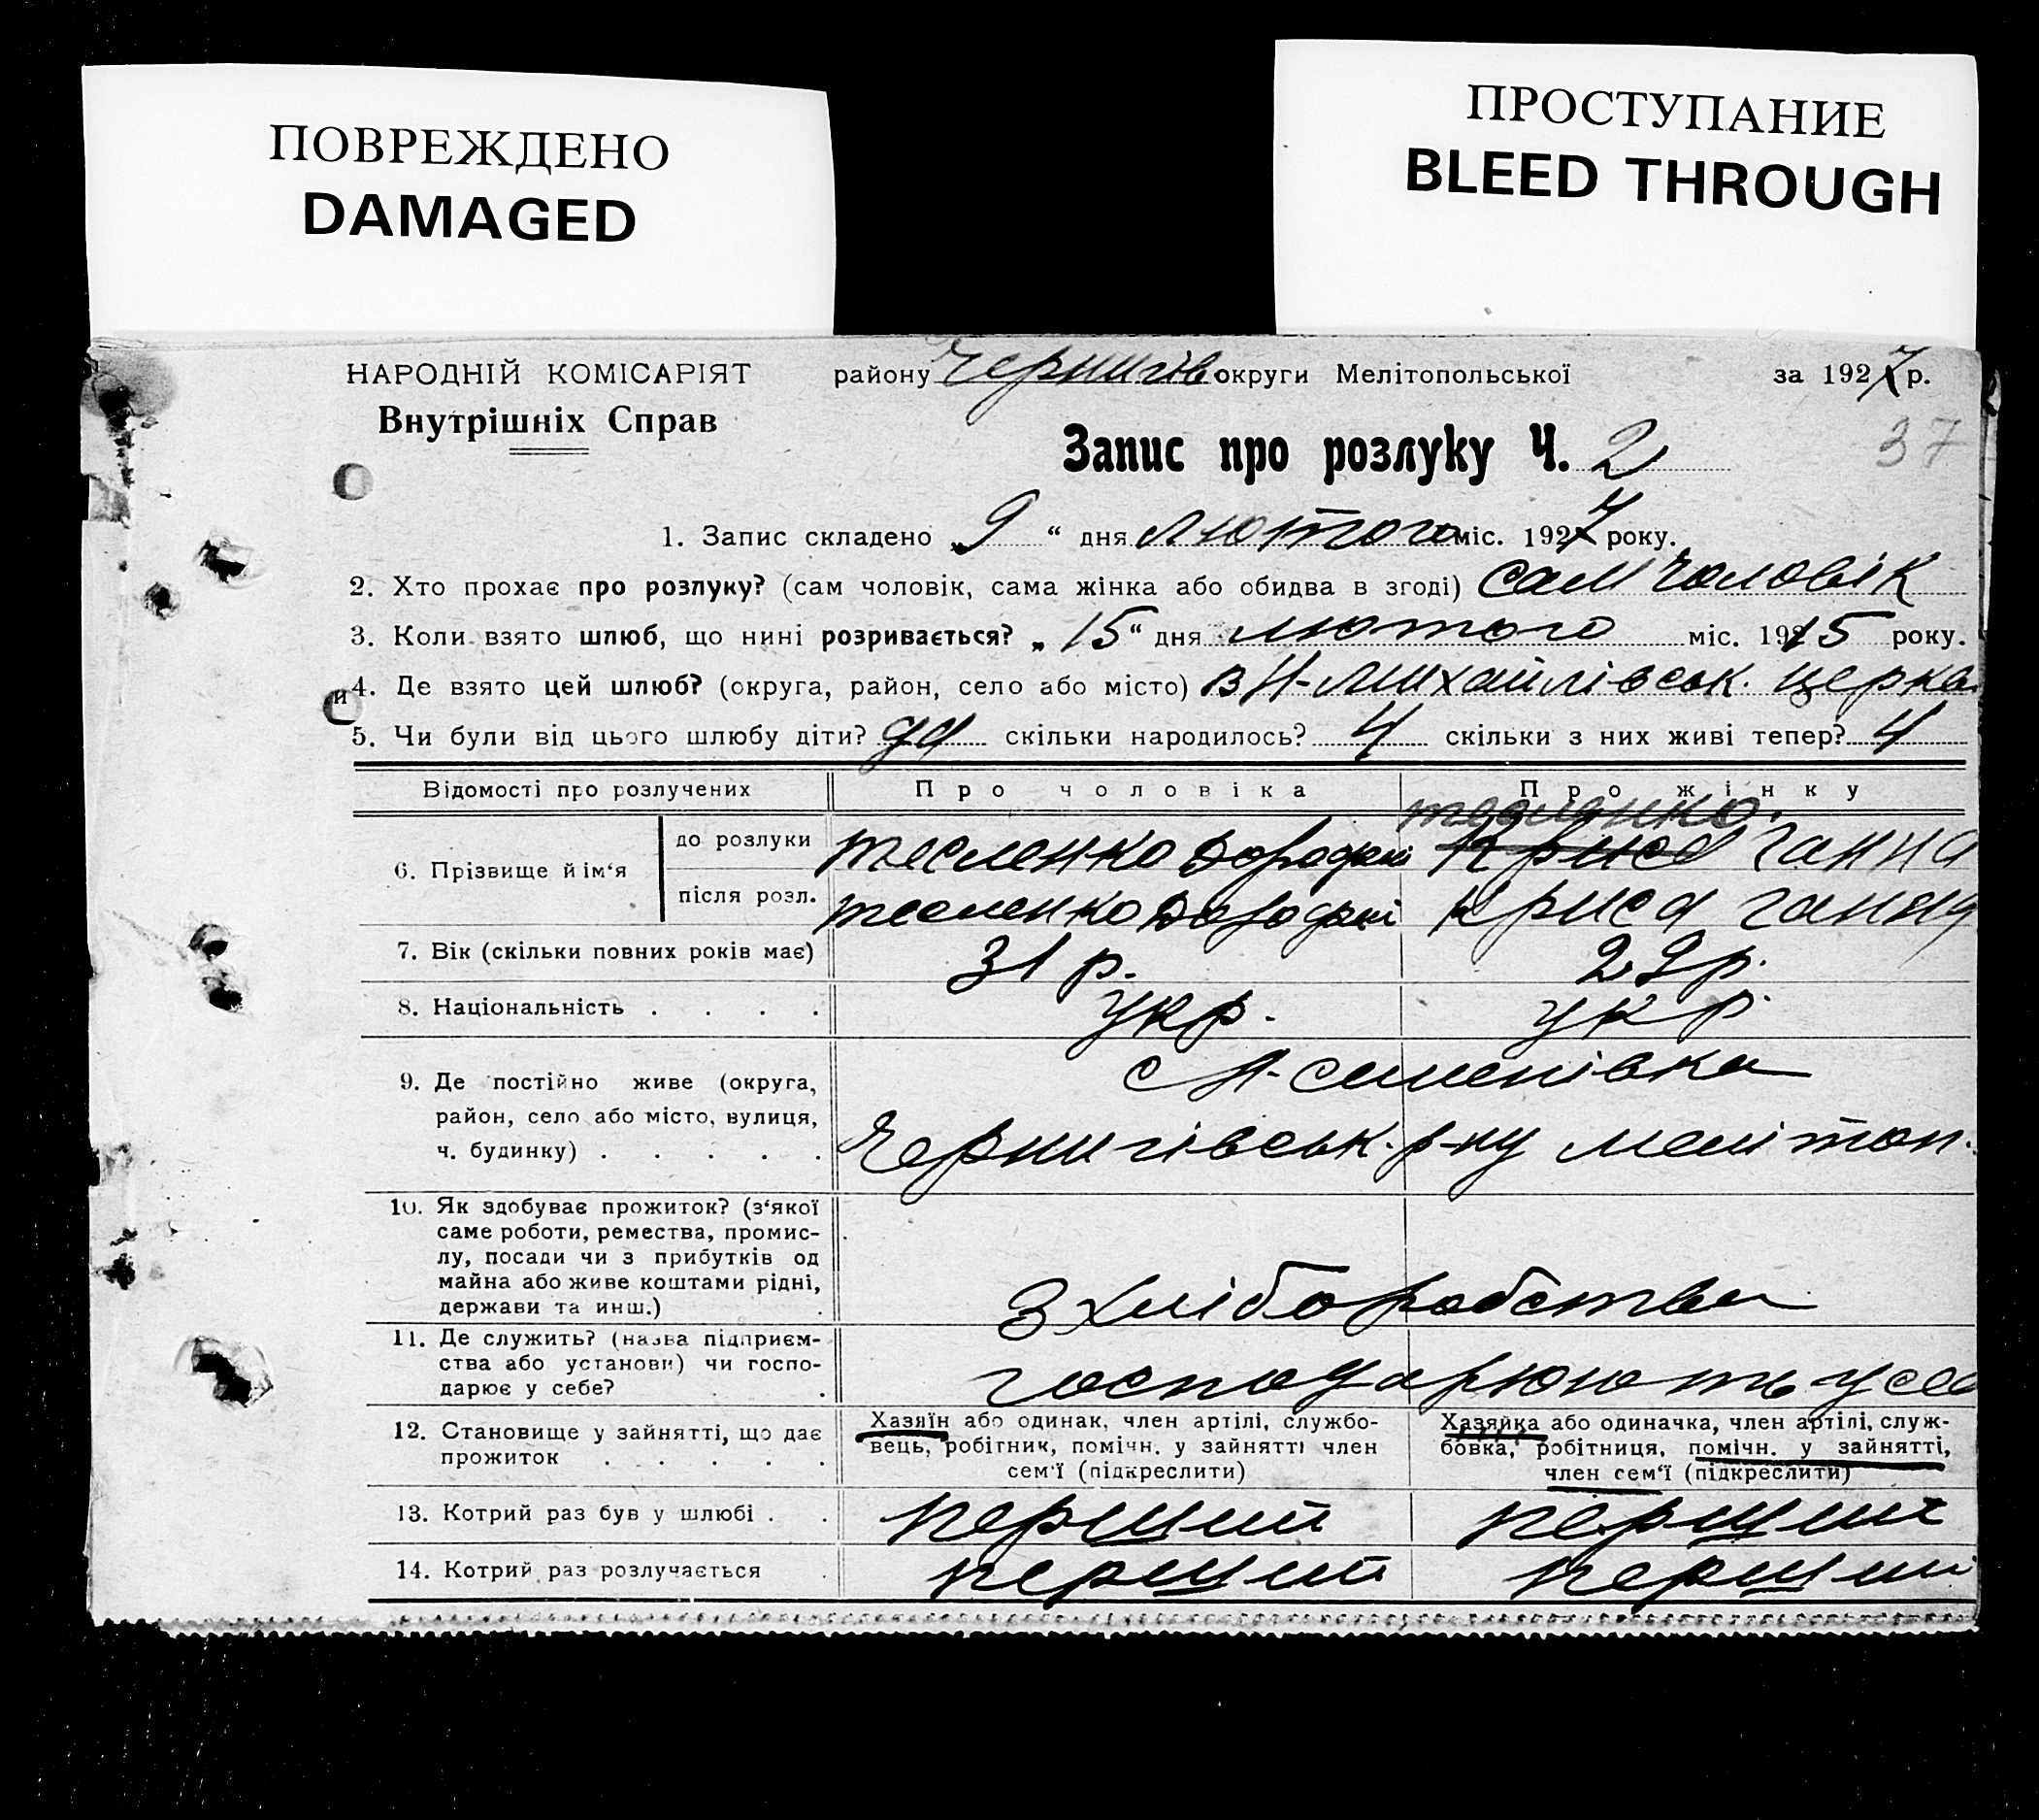 ПОВРЕЖДЕНО
DAMAGED
ПРОСТУПАНИЕ
BLEED THROUGH
НАРОДНІЙ КОМІСАРІЯТ
Внутрішніх Справ
району Чернигів округи Мелітопольської за 1927 р.
Запис про розлуку Ч. 2
37
1. Запис складено „9“ дня лютого міс. 1927 року.
2. Хто прохає про розлуку? (сам чоловік, сама жінка або обидва в згоді) сам чоловік
3. Коли взято шлюб, що нині розривається? „15“ дня лютого міс. 1915 року.
4. Де взято цей шлюб? (округа, район, село або місто) в Н-Михайлівськ. церкв
5. Чи були від цього шлюбу діти? да скільки народилось? 4 скільки з них живі тепер? 4
Відомості про розлучених Про чоловіка Про жінку
тесленко.
6. Прізвище й ім‘я до розлуки тесленко Дорофей Криса Ганна
після розл. тесленко Дорофей Криса Ганна
7. Вік (скільки повних років має) 31 р. 29 р.
8. Національність . . . . укр. укр
9. Де постійно живе (округа, с Н-семенівка
район, село або місто, вулиця,
ч. будинку) . . . . . Чернигівськ. р-ну мелітоп.
10. Як здобуває прожиток? (з‘якої
саме роботи, ремества, промис-
лу, посади чи з прибутків од
майна або живе коштами рідні,
держави та инш.) . З хліборобства
11. Де служить? (назва підприєм-
ства або установи) чи госпо-
дарює у себе? . . господарюють у себе
12. Становище у зайнятті, що дає
прожиток . . . . .
Хазяїн або одинак, член артілі, службо-
вець, робітник, помічн. у зайнятті член
сем‘ї (підкреслити)
Хазяйка або одиначка, член артілі, служ-
бовка, робітниця, помічн. у зайнятті,
член сем‘ї (підкреслити)
13. Котрий раз був у шлюбі . . перший перший
14. Котрий раз розлучається . перший перший